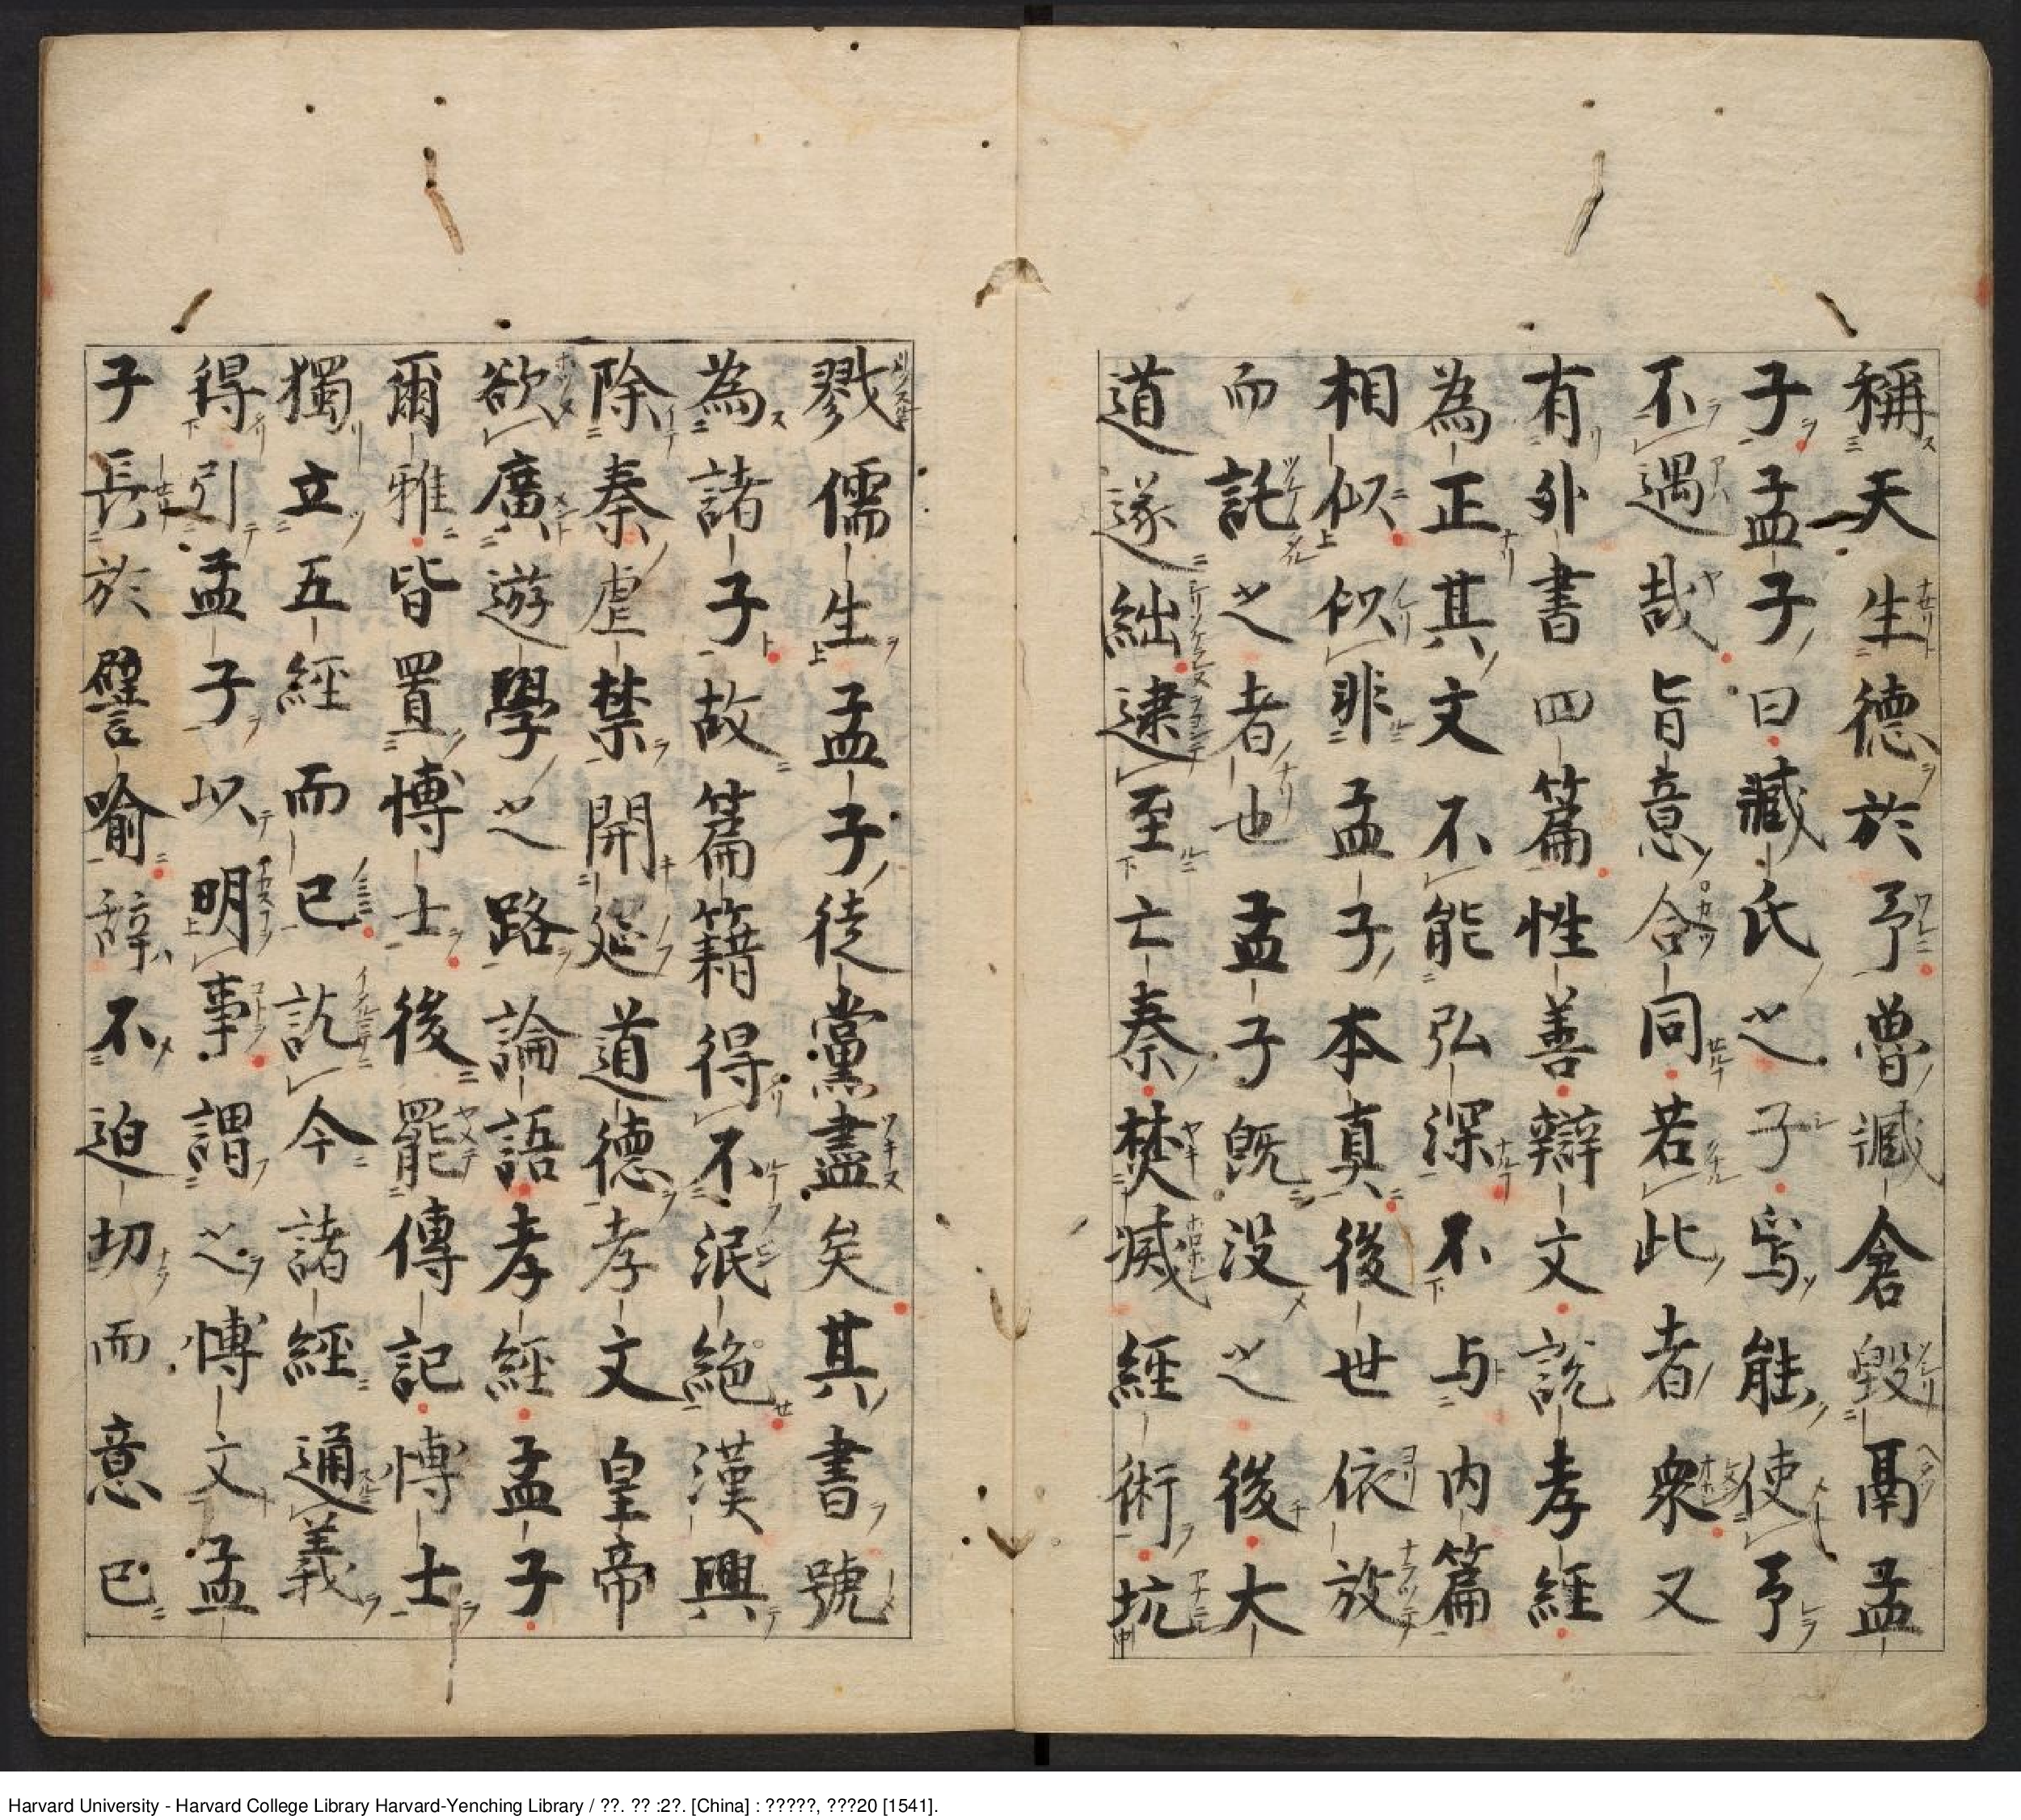 稱天生德於予魯臧倉毀鬲孟
子孟子曰臧氏之子焉能使予
不遇哉旨意合同若此者衆又
有外書四篇性善辯文說孝經
為正其文不能弘深不与内篇
相似似非孟子本真後世依放
而託之者也孟子既没之後大
道遂絀逮至亡秦焚滅經術坑
戮儒生孟子徒黨盡矣其書號
為諸子故篇籍得不泯絶漢興
除秦虐禁開延道德孝文皇帝
欲廣遊學之路論語孝經孟子
爾雅皆置博士後罷傳記博士
獨立五經而已訖今諸經通義
得引孟子以明事謂之博文孟
子長於譬喻辭不迫切而意已
Harvard University - Harvard College Library Harvard-Yenching Library / ??. ?? :2?. [China] : ?????, ???20 [1541].